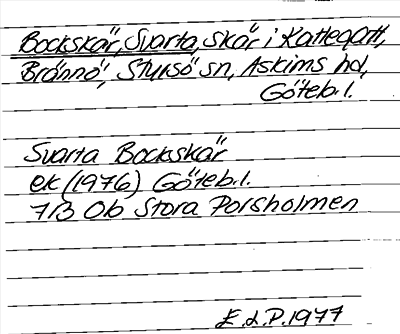 Bockskär, Svarta, skär i Kattegatt,
Brännö, Styrsö sn, Askims hd,
Göteb.l.
Svarta Bockskär
ek (1976) Göteb.l.
7B 0b Stora Porsholmen
E.L.P. 1977